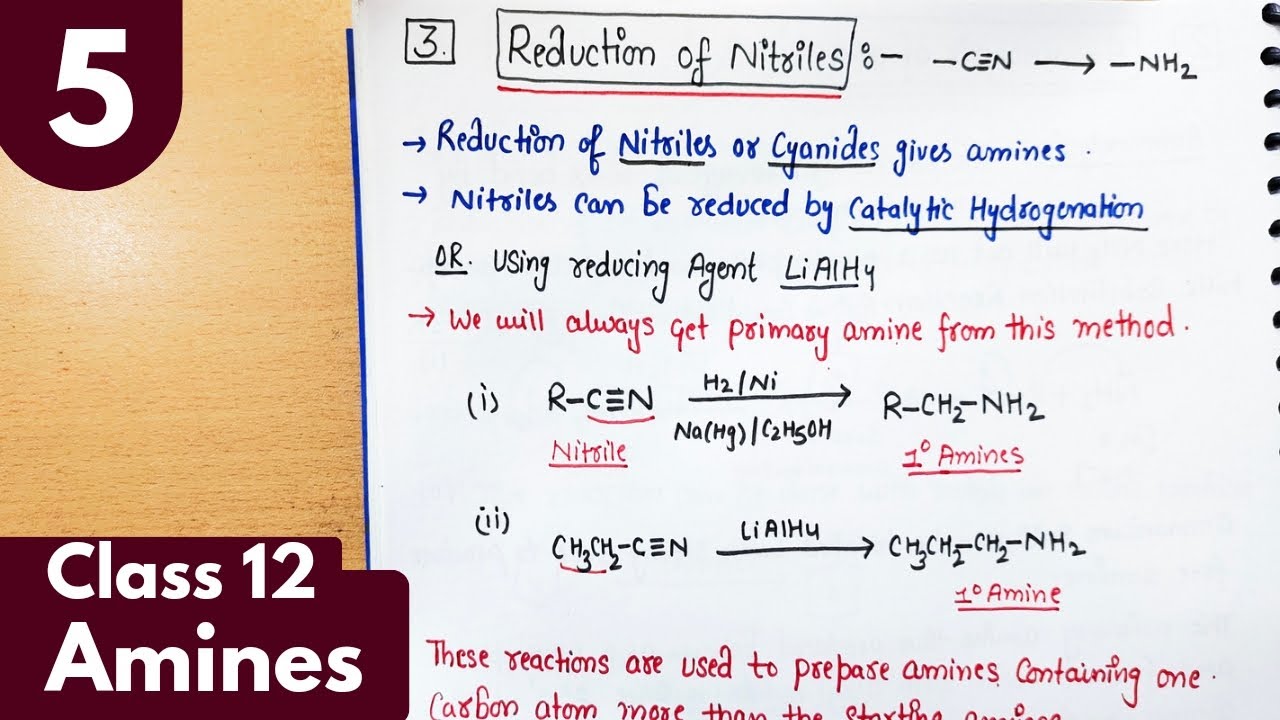 5
3. Reduction of Nitriles :- -C≡N ⟶ -NH2
→ Reduction of Nitriles or Cyanides gives amines.
→ Nitriles can be reduced by Catalytic Hydrogenation
OR. Using reducing Agent LiAlH4
→ We will always get primary amine from this method.
(i) R-C≡N H2/Ni ⟶ R-CH2-NH2
Na(Hg)/C2H5OH
Nitrile 1° Amines
(ii) CH3CH2-C≡N LiAlH4 ⟶ CH3CH2-CH2-NH2
1° Amine
Class 12
Amines
These reactions are used to prepare amines containing one.
Carbon atom more than the starting amines